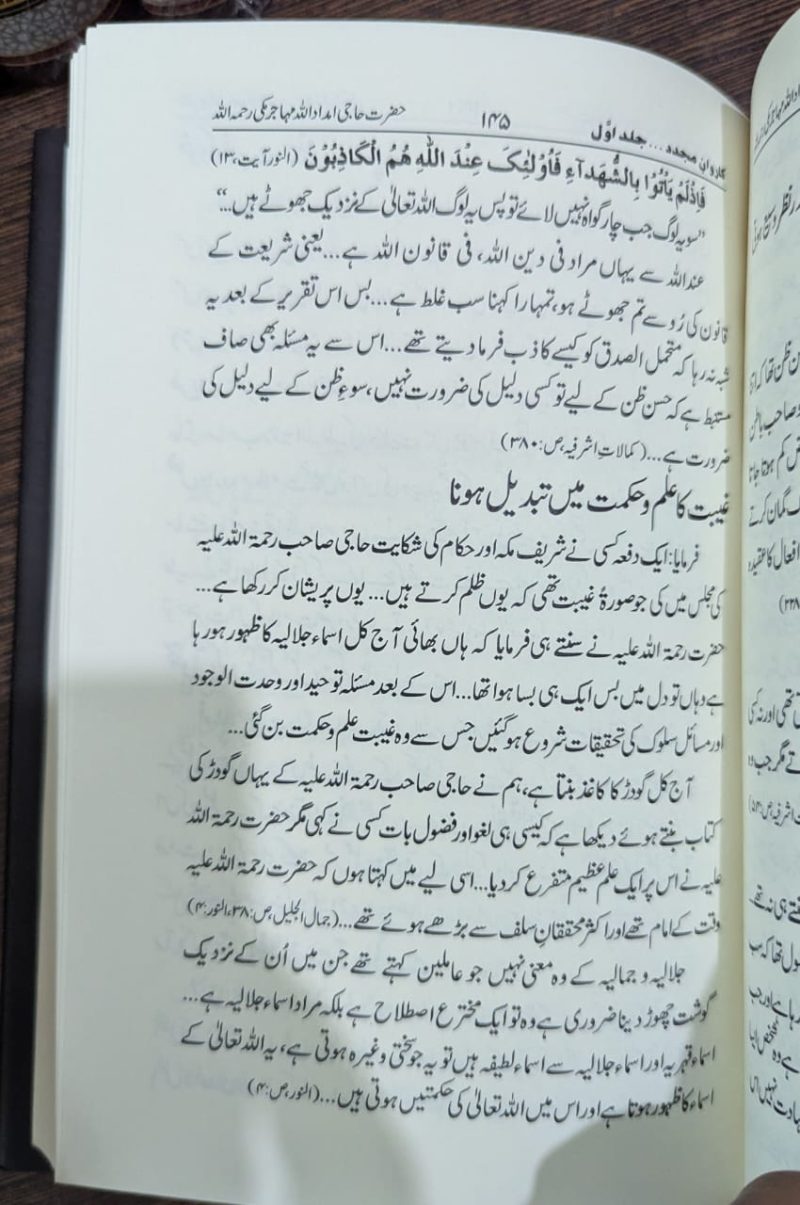 کاروانِ مجدد... جلد اوّل ۱۴۵ حضرت حاجی امداد اللہ مہاجر مکی رحمہ اللہ
فَاِذْلَمْ يَاْتُوْا بِالشُّهَدَآءِ فَاُوْلٰئِكَ عِنْدَ اللّٰهِ هُمُ الْكَاذِبُوْنَ (النور آیت، ۱۳)
”سو یہ لوگ جب چار گواہ نہیں لائے تو پس یہ لوگ اللہ تعالیٰ کے نزدیک جھوٹے ہیں...“
عنداللہ سے یہاں مراد فی دین اللہ، فی قانون اللہ ہے... یعنی شریعت کے
قانون کی رُو سے تم جھوٹے ہو، تمہارا کہنا سب غلط ہے... بس اس تقریر کے بعد یہ
شبہ نہ رہا کہ متحمل الصدق کو کیسے کاذب فرما دیتے تھے... اس سے یہ مسئلہ بھی صاف
مستنبط ہے کہ حسن ظن کے لیے تو کسی دلیل کی ضرورت نہیں، سوءِ ظن کے لیے دلیل کی
ضرورت ہے... (کمالاتِ اشرفیہ، ص: ۳۸۰)
غیبت کا علم و حکمت میں تبدیل ہونا
فرمایا: ایک دفعہ کسی نے شریف مکہ اور حکام کی شکایت حاجی صاحب رحمۃ اللہ علیہ
کی مجلس میں کی جو صورۃً غیبت تھی کہ یوں ظلم کرتے ہیں... یوں پریشان کر رکھا ہے...
حضرت رحمۃ اللہ علیہ نے سنتے ہی فرمایا کہ ہاں بھائی آج کل اسماء جلالیہ کا ظہور ہو رہا
ہے وہاں تو دل میں بس ایک ہی بسا ہوا تھا... اس کے بعد مسئلہ توحید اور وحدت الوجود
اور مسائل سلوک کی تحقیقات شروع ہو گئیں جس سے وہ غیبت علم و حکمت بن گئی...
آج کل گودڑ کا کاغذ بنتا ہے، ہم نے حاجی صاحب رحمۃ اللہ علیہ کے یہاں گودڑ کی
کتاب بنتے ہوئے دیکھا ہے کہ کیسی ہی لغو اور فضول بات کسی نے کہی مگر حضرت رحمۃ اللہ
علیہ نے اس پر ایک علم عظیم متفرع کر دیا... اسی لیے میں کہتا ہوں کہ حضرت رحمۃ اللہ علیہ
وقت کے امام تھے اور اکثر محققانِ سلف سے بڑھے ہوئے تھے... (جمال الجلیل، ص: ۳۸، النور: ۴)
جلالیہ و جمالیہ کے وہ معنی نہیں جو عاملین کہتے تھے جن میں اُن کے نزدیک
گوشت چھوڑ دینا ضروری ہے وہ تو ایک مخترع اصطلاح ہے بلکہ مراد اسماء جلالیہ ہے...
اسماء قہریہ اور اسماء جلالیہ سے اسماء لطیفہ ہیں تو یہ جو سختی وغیرہ ہوتی ہے، یہ اللہ تعالیٰ کے
اسماء کا ظہور ہوتا ہے اور اس میں اللہ تعالیٰ کی حکمتیں ہوتی ہیں... (النور، ص: ۴)